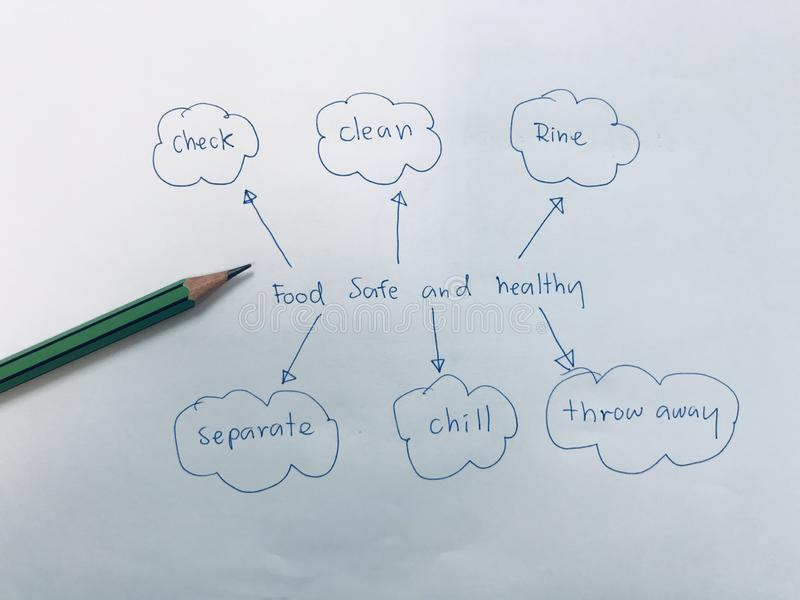 check
clean
Rine
Food Safe and healthy
dreamstime.com
separate
chill
throw away